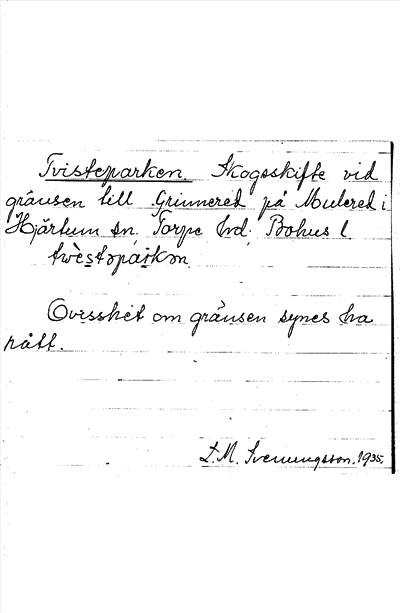 Tvisteparken. Skogsskifte vid
gränsen till Grinnered på Mulered i
Hjärtum sn, Torpe hd, Bohus l
twèstəparkən
Ovisshet om gränsen synes ha
rått.
D.M. Svenungsson. 1935.